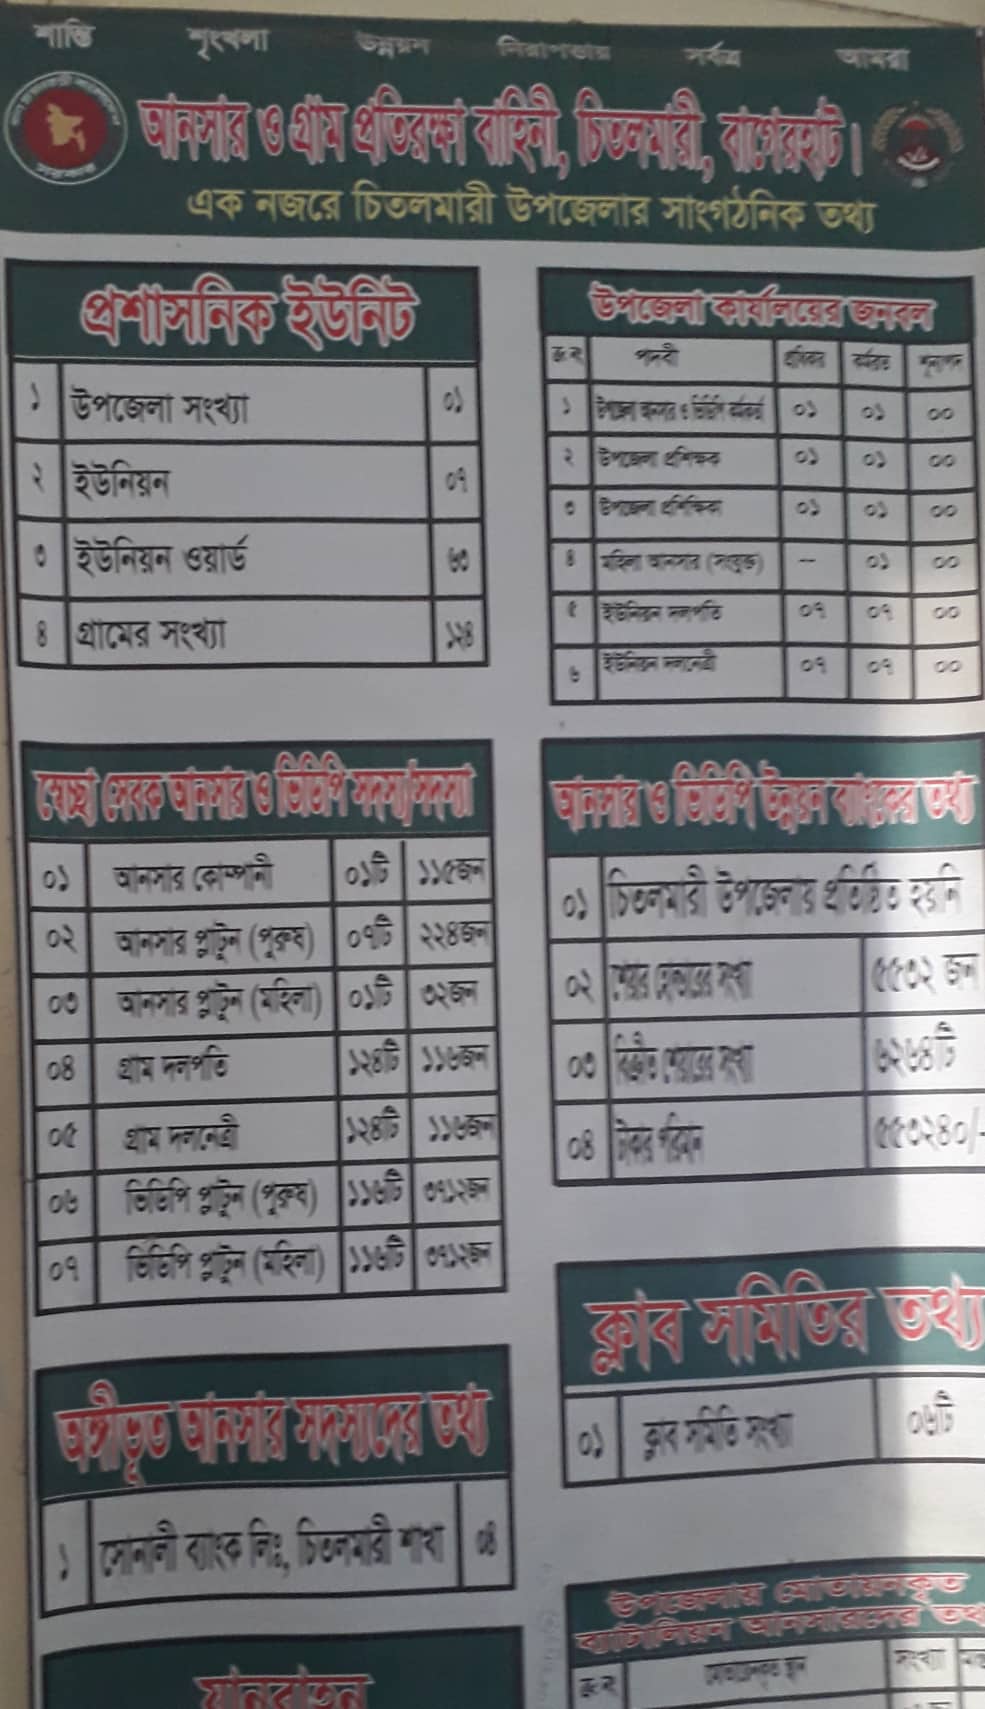 শান্তি শৃংখলা উন্নয়ন নিরাপত্তায় সর্বত্র আমরা
আনসার ও গ্রাম প্রতিরক্ষা বাহিনী, চিতলমারী, বাগেরহাট।
এক নজরে চিতলমারী উপজেলার সাংগঠনিক তথ্য
প্রশাসনিক ইউনিট
১ উপজেলা সংখ্যা ০১
২ ইউনিয়ন ০৭
৩ ইউনিয়ন ওয়ার্ড ৬৩
৪ গ্রামের সংখ্যা ১২৪
উপজেলা কার্যালয়ের জনবল
ক্র: নং পদবী কর্মরত শূন্যপদ
১ উপজেলা আনসার ও ভিডিপি কর্মকর্তা ০১ ০১ ০০
২ উপজেলা প্রশিক্ষক ০১ ০১ ০০
৩ উপজেলা প্রশিক্ষিকা ০১ ০১ ০০
৪ মহিলা আনসার (সংযুক্ত) -- ০১ ০০
৫ ইউনিয়ন দলপতি ০৭ ০৭ ০০
৬ ইউনিয়ন দলনেত্রী ০৭ ০৭ ০০
স্বেচ্ছা সেবক আনসার ও ভিডিপি সদস্য/সদস্যা
০১ আনসার কোম্পানী ০১টি ১১৫জন
০২ আনসার প্লাটুন (পুরুষ) ০৭টি ২২৪জন
০৩ আনসার প্লাটুন (মহিলা) ০১টি ৩২জন
০৪ গ্রাম দলপতি ১২৪টি ১১৬জন
০৫ গ্রাম দলনেত্রী ১২৪টি ১১৬জন
০৬ ভিডিপি প্লাটুন (পুরুষ) ১১৬টি ৩৭১২জন
০৭ ভিডিপি প্লাটুন (মহিলা) ১১৬টি ৩৭১২জন
আনসার ও ভিডিপি উন্নয়ন ব্যাংকের তথ্য
০১ চিতলমারী উপজেলায় প্রতিষ্ঠিত হয়নি
০২ শেয়ার হোল্ডারের সংখ্যা ৫৫৩২ জন
০৩ বিক্রীত শেয়ারের সংখ্যা ৬২৬৪টি
০৪ টাকার পরিমান ৫৫৩২৪০/-
ক্লাব সমিতির তথ্য
০১ ক্লাব সমিতি সংখ্যা ০৬টি
অঙ্গীভূত আনসার সদস্যদের তথ্য
১ সোনালী ব্যাংক লিঃ, চিতলমারী শাখা ০৪
উপজেলায় মোতায়েনকৃত
ব্যাটালিয়ন আনসারদের তথ্য
ক্র: নং মোতায়েনকৃত স্থান সংখ্যা
যানবাহন